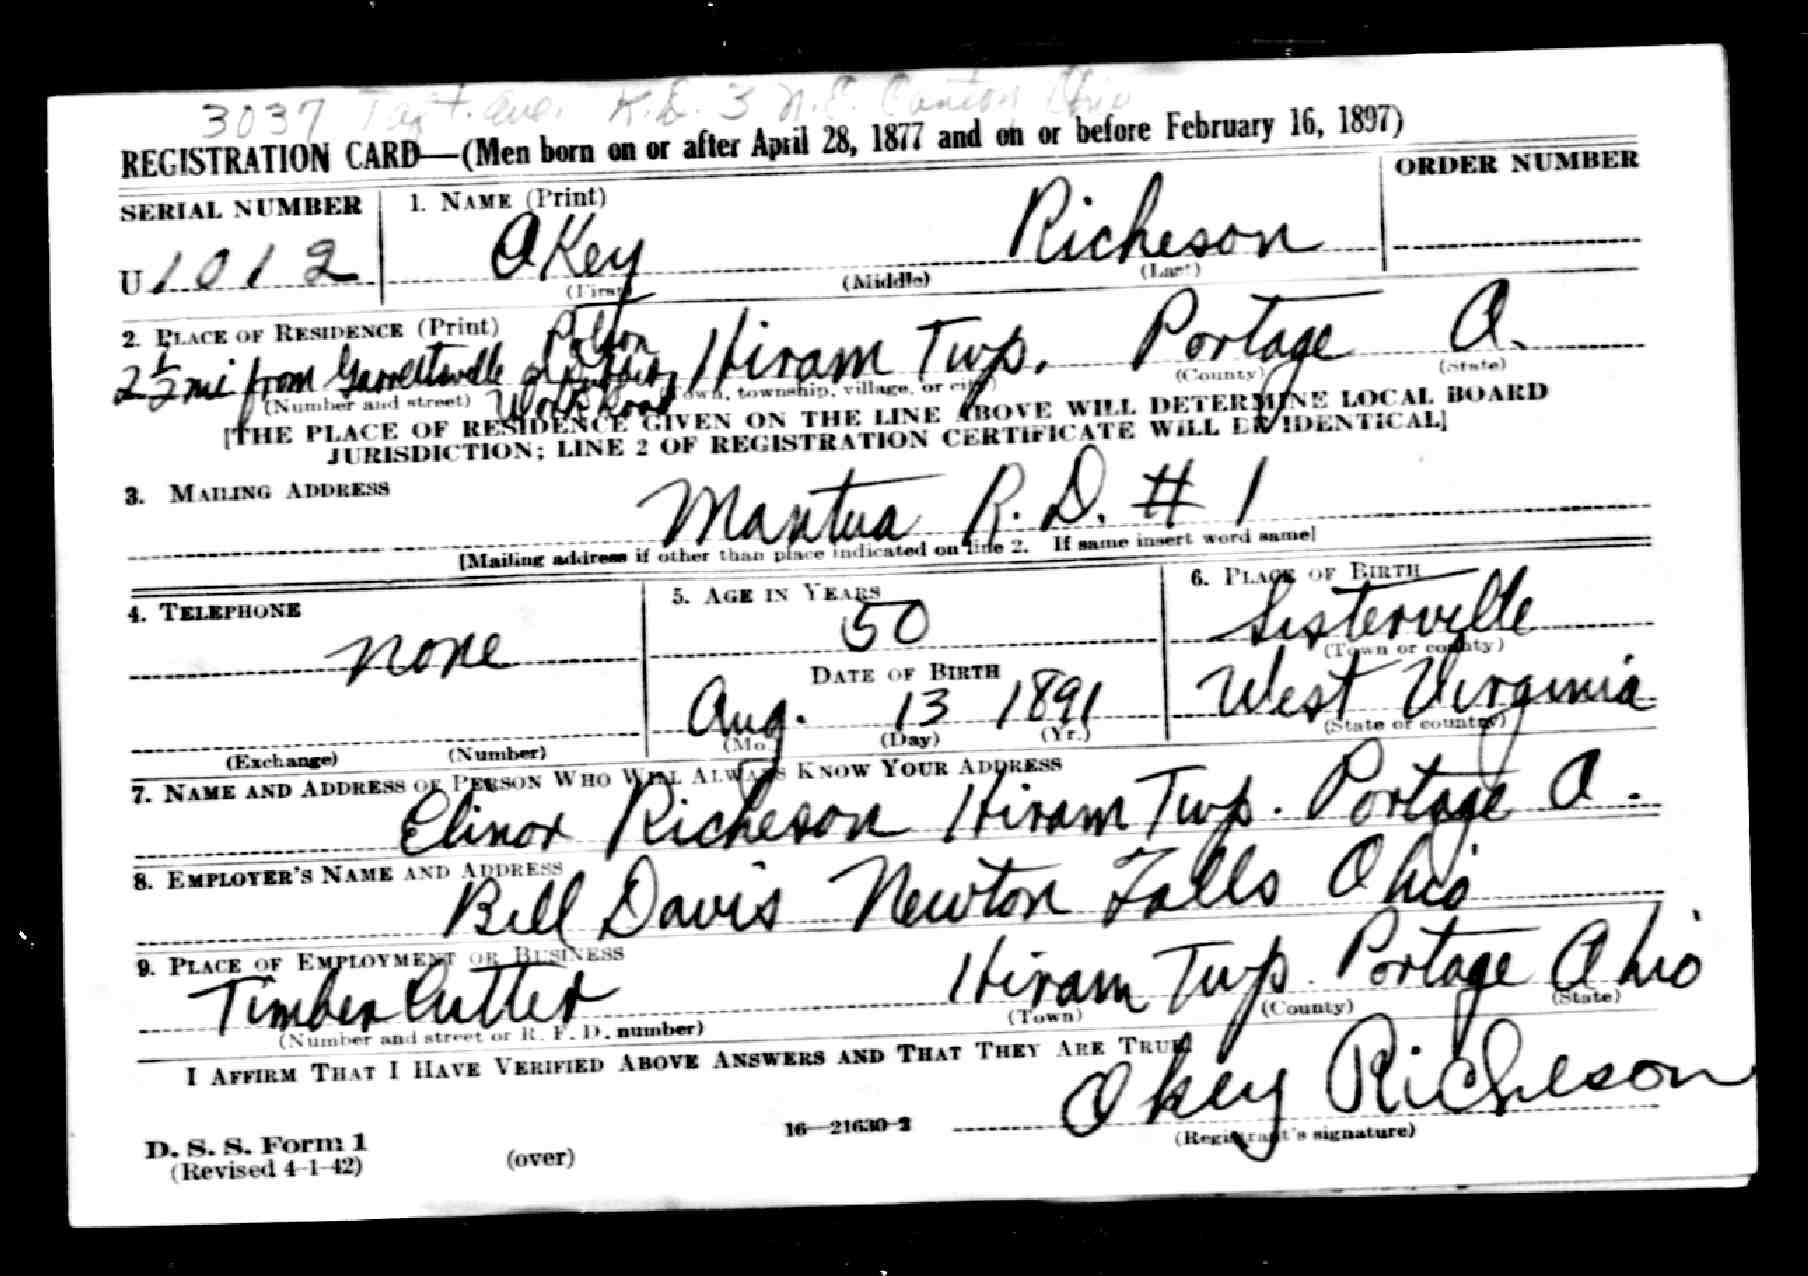 3037 Taft. Ave. R.D. 3 N.E. Canton Ohio
REGISTRATION CARD—(Men born on or after April 28, 1877 and on or before February 16, 1897)
SERIAL NUMBER 1. NAME (Print) ORDER NUMBER
U 1012 OKey Richeson
(First) (Middle) (Last)
2. PLACE OF RESIDENCE (Print)
2 1/2 mi from Garrettsville Hiram Twp. Portage O.
(Number and street) (Town, township, village, or city) (County) (State)
[THE PLACE OF RESIDENCE GIVEN ON THE LINE ABOVE WILL DETERMINE LOCAL BOARD
JURISDICTION; LINE 2 OF REGISTRATION CERTIFICATE WILL BE IDENTICAL]
3. MAILING ADDRESS
Mantua R.D. # 1
[Mailing address if other than place indicated on line 2. If same insert word same]
4. TELEPHONE 5. AGE IN YEARS 6. PLACE OF BIRTH
none 50 Sisterville
(Town or county)
DATE OF BIRTH
Aug. 13 1891 West Virginia
(Exchange) (Number) (Mo.) (Day) (Yr.) (State or country)
7. NAME AND ADDRESS OF PERSON WHO WILL ALWAYS KNOW YOUR ADDRESS
Elinor Richeson Hiram Twp. Portage O.
8. EMPLOYER'S NAME AND ADDRESS
Bill Davis Newton Falls Ohio
9. PLACE OF EMPLOYMENT OR BUSINESS
Timber Cutter Hiram Twp. Portage Ohio
(Number and street or R. F. D. number) (Town) (County) (State)
I AFFIRM THAT I HAVE VERIFIED ABOVE ANSWERS AND THAT THEY ARE TRUE.
Okey Richeson
D. S. S. Form 1 16—21630-2 (Registrant's signature)
(Revised 4-1-42) (over)